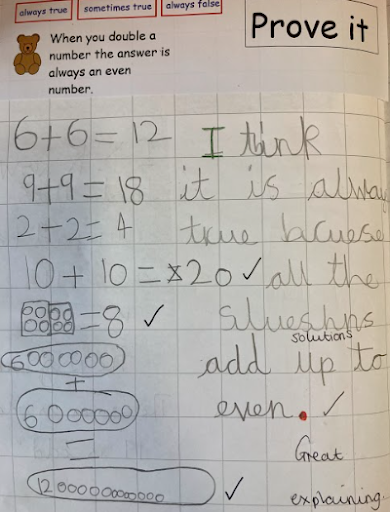 always true
sometimes true
always false
When you double a
number the answer is
always an even
number.
Prove it
6+6=12
9+9=18
2+2=4
10+10=20 ✓
=8 ✓
6000000
+
=
✓
I think
it is alway
true bcuese
all the
slueshns
solutions
add up to
even. ✓
Great
explaining.